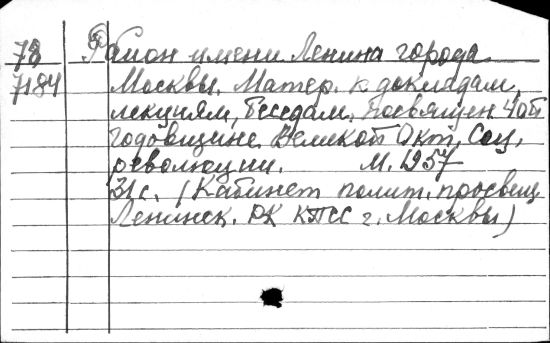 78 Район имени Ленина города
7184 Москвы. Матер. к докладам,
лекциям, беседам, посвящен. 40й
годовщине Великой Окт. Соц.
революции. М. 1957
31с. (Кабинет полит. просвещ
Ленинск. РК КПСС г. Москвы)